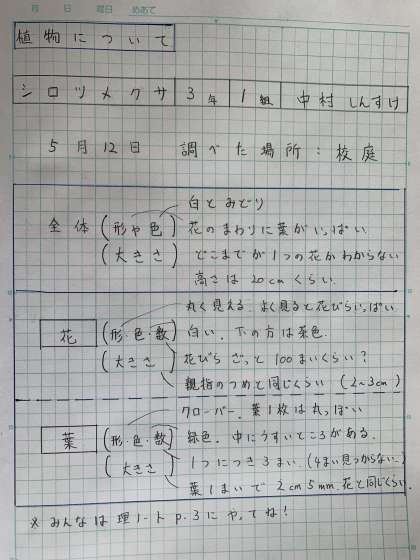 月 日 曜日 めあて
植物について
シロツメクサ 3年 1組 中村 しんすけ
5月12日 調べた場所：校庭
白とみどり
全体（形や色） 花のまわりに葉がいっぱい
（大きさ） どこまでが1つの花かわからない
高さは20cmくらい.
丸く見える. よく見ると花びらいっぱい
花（形・色・数） 白い. 下の方は茶色.
（大きさ） 花びら ざっと100まいくらい？
親指のつめと同じくらい（2~3cm）
クローバー. 葉1枚は丸っぽい
葉（形・色・数） 緑色. 中にうすいところがある.
（大きさ） 1つにつき3まい.（4まい見つからない..）
葉1まいで2cm5mm. 花と同じくらい.
※みんなは理ノート p.3にやってね！